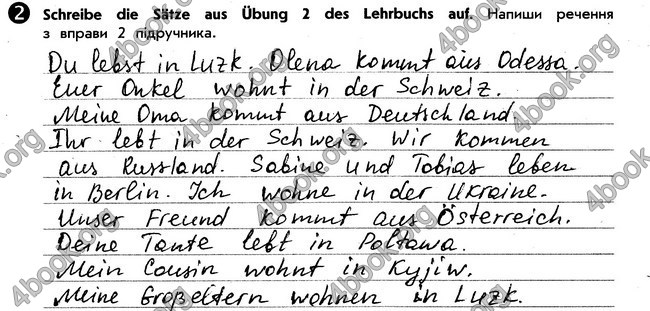 2 Schreibe die Sätze aus Übung 2 des Lehrbuchs auf. Напиши речення
з вправи 2 підручника.
Du lebst in Luzk. Olena kommt aus Odessa.
Euer Onkel wohnt in der Schweiz.
Meine Oma kommt aus Deutschland.
Ihr lebt in der Schweiz. Wir kommen
aus Russland. Sabine und Tobias leben
in Berlin. Ich wohne in der Ukraine.
Unser Freund kommt aus Österreich.
Deine Tante lebt in Poltawa.
Mein Cousin wohnt in Kyjiw.
Meine Großeltern wohnen in Luzk.
4book.org